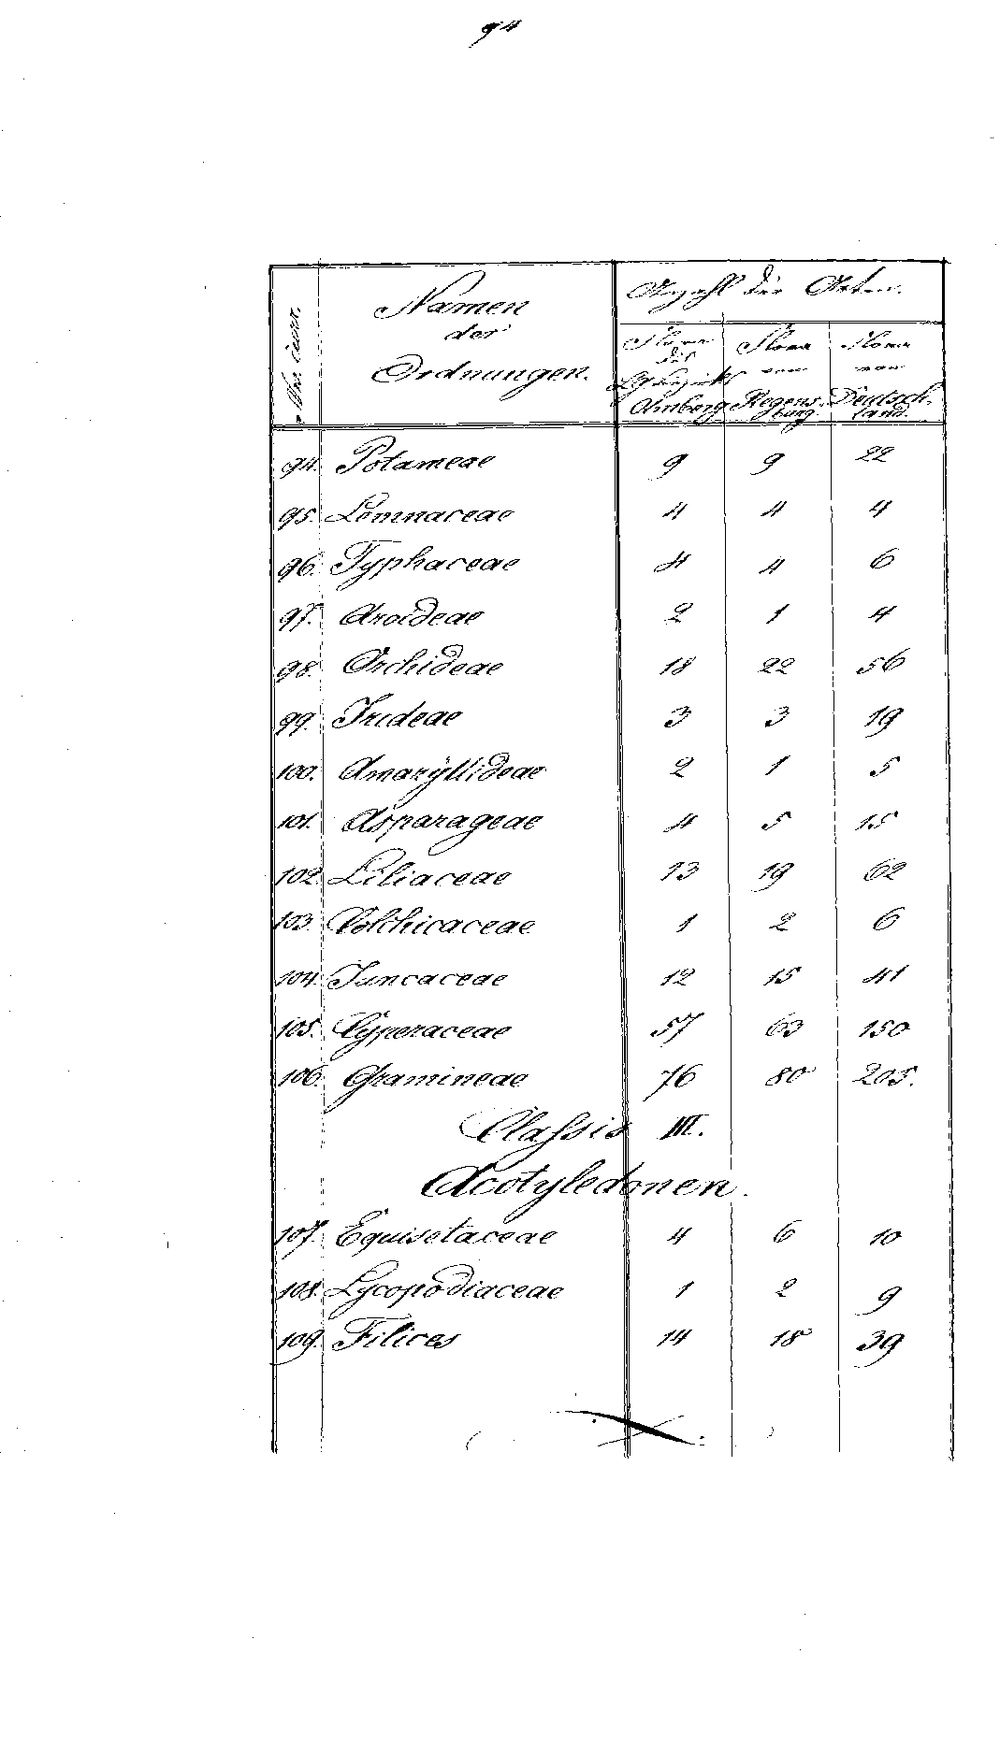 94
Namen
der
Ordnungen.
Anzahl der Arten.
Flora
des
Amberg
Flora
von
Regens-
burg.
Flora
von
Deutsch-
land.
94. Potameae 9 9 22
95. Lemnaceae 4 4 4
96. Typhaceae 4 4 6
97. Aroideae 2 1 4
98. Orchideae 18 22 56
99. Irideae 3 3 19
100. Amaryllideae 2 1 5
101. Asparageae 4 5 15
102. Liliaceae 13 19 62
103. Colchicaceae 1 2 6
104. Juncaceae 12 15 41
105. Cyperaceae 57 63 150
106. Gramineae 76 80 205.
Classis III.
Acotyledonen.
107. Equisetaceae 4 6 10
108. Lycopodiaceae 1 2 9
109. Filices 14 18 39